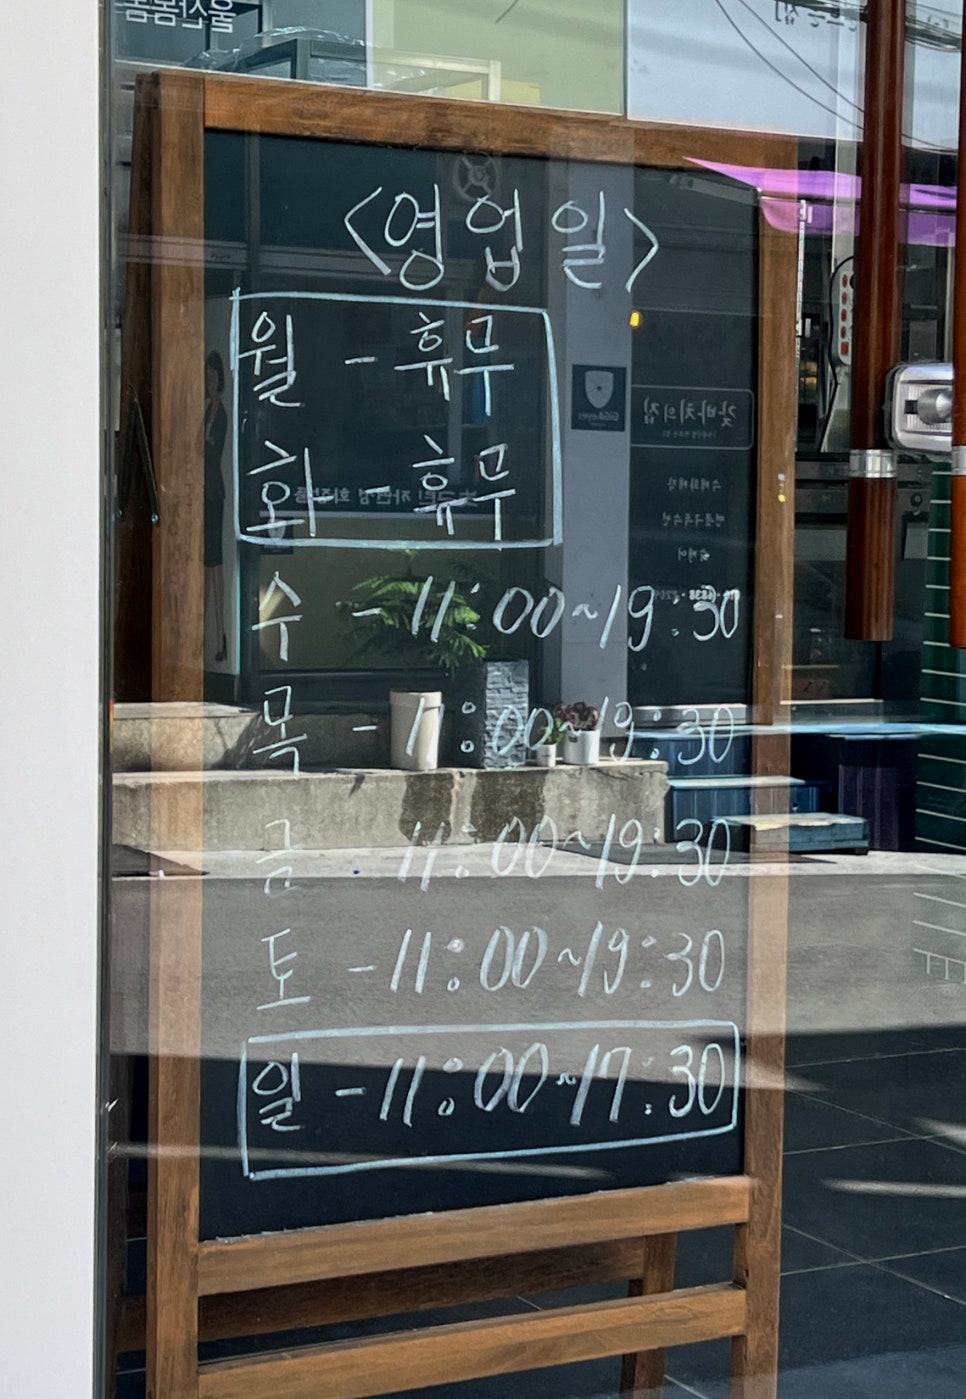 <영업일>
월 - 휴무
화 - 휴무
수 - 11:00~19:30
목 - 11:00~19:30
금 - 11:00~19:30
토 - 11:00~19:30
일 - 11:00~17:30
울산봄봄
갖바치의집